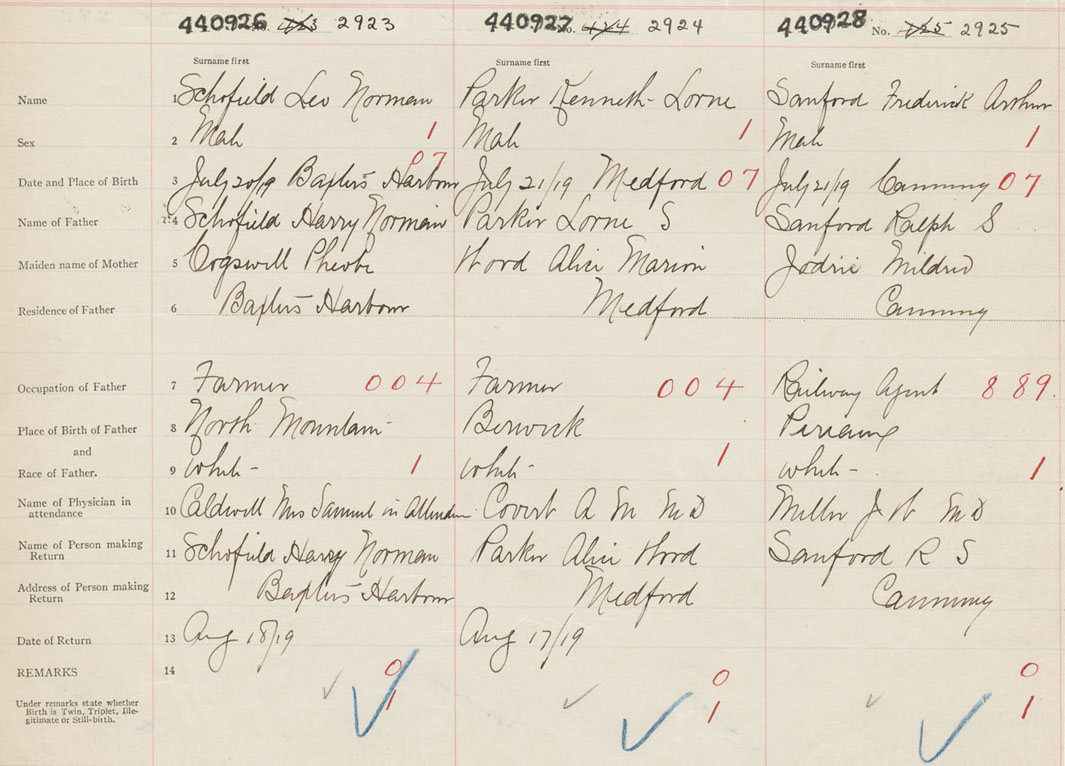 440926 No. 423 2923 440927 No. 424 2924 440928 No. 425 2925
Surname first Surname first Surname first
Name 1 Schofield Leo Norman Parker Kenneth Lorne Sanford Frederick Arthur
Sex 2 Male 1 Male 1 Male 1
07
Date and Place of Birth 3 July 20/19 Baxters Harbour July 21/19 Medford 07 July 21/19 Canning 07
Name of Father 4 Schofield Harry Norman Parker Lorne S Sanford Ralph S
Maiden name of Mother 5 Cogswell Pheobe Wood Alice Marion Jodrie Mildred
Residence of Father 6 Baxters Harbour Medford Canning
Occupation of Father 7 Farmer 004 Farmer 004 Railway Agent 889.
Place of Birth of Father 8 North Mountain Berwick
and
Race of Father. 9 White 1 White 1 White 1
Name of Physician in
attendance 10 Caldwell Mrs Samuel in Covert A M M D Miller J W M D
Name of Person making
Return 11 Schofield Harry Norman Parker Alice Wood Sanford R S
Address of Person making
Return 12 Baxters Harbour Medford Canning
Date of Return 13 Aug 18/19 Aug 17/19
REMARKS 14 0 0 0
Under remarks state whether
Birth is Twin, Triplet, Ille-
gitimate or Still-birth. 1 1 1